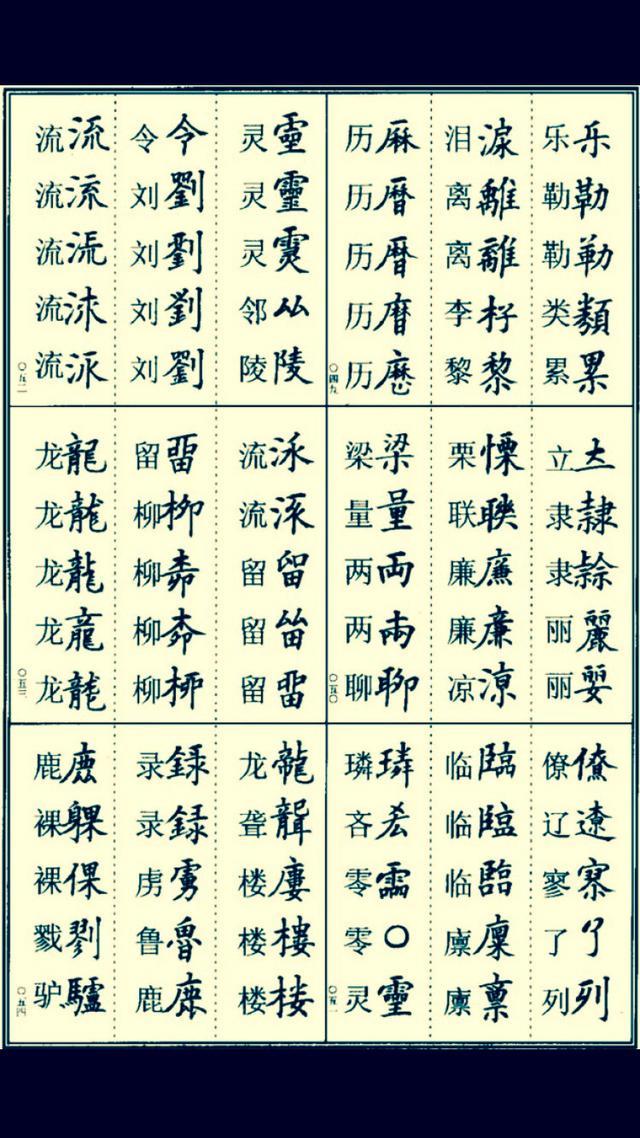 乐乐 勒勒 勒勒 类類 累累
泪淚 离離 离離 李杍 黎黎
历厤 历暦 历暦 历 历
〇四九
立 隶隷 隶 丽麗 丽
栗慄 联聫 廉廉 廉廉 凉凉
梁梁 量量 两両 两両 聊聊
〇五〇
僚僚 辽遼 寥寮 了了 列列
临臨 临臨 临臨 廪廩 廪稟
璘璘 吝 零 零〇 灵靈
〇五一
灵靈 灵靈 灵 邻厸 陵陵
令令 刘劉 刘劉 刘劉 刘劉
流流 流流 流流 流 流
〇五二
流 流 留留 留 留畱
留畱 柳柳 柳 柳 柳
龙龍 龙龍 龙龍 龙龍 龙龍
〇五三
龙龍 聋聾 楼廔 楼楼 楼楼
录録 录録 虏虜 鲁魯 鹿
鹿鹿 裸躶 裸倮 戮剹 驴驢
〇五四